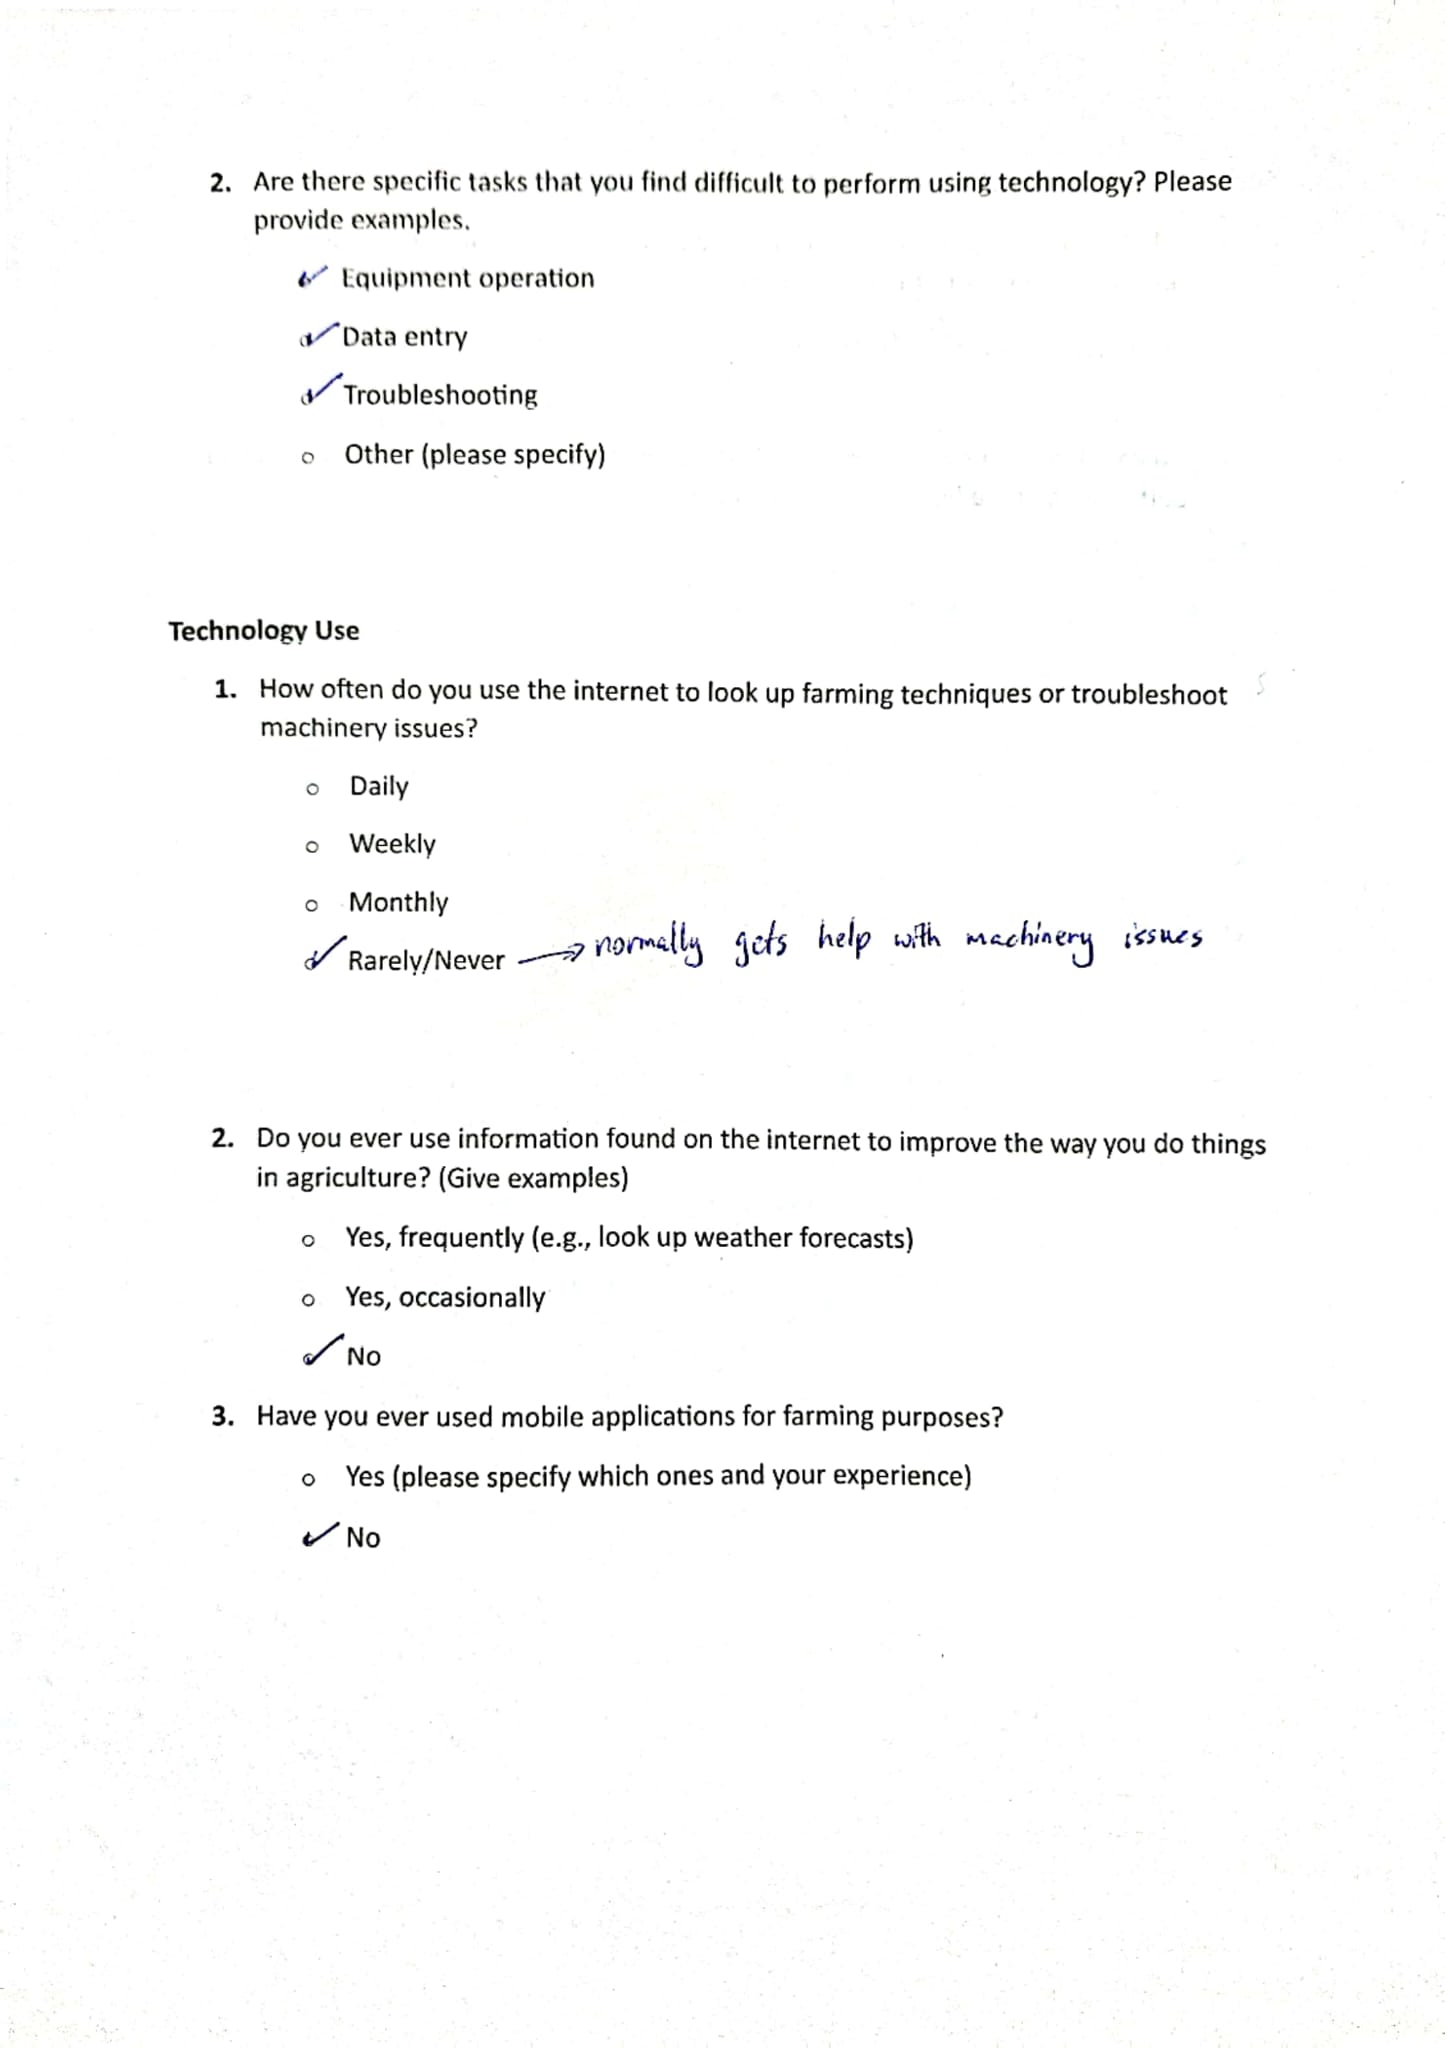 2. Are there specific tasks that you find difficult to perform using technology? Please
provide examples.
✓ Equipment operation
✓ Data entry
✓ Troubleshooting
o Other (please specify)
Technology Use
1. How often do you use the internet to look up farming techniques or troubleshoot
machinery issues?
o Daily
o Weekly
o Monthly
✓ Rarely/Never → normally gets help with machinery issues
2. Do you ever use information found on the internet to improve the way you do things
in agriculture? (Give examples)
o Yes, frequently (e.g., look up weather forecasts)
o Yes, occasionally
✓ No
3. Have you ever used mobile applications for farming purposes?
o Yes (please specify which ones and your experience)
✓ No